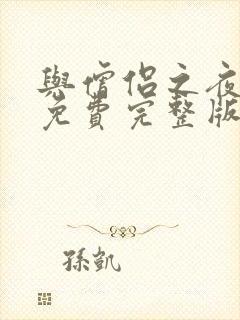 與僧侶之夜
免費完整版
孫凱